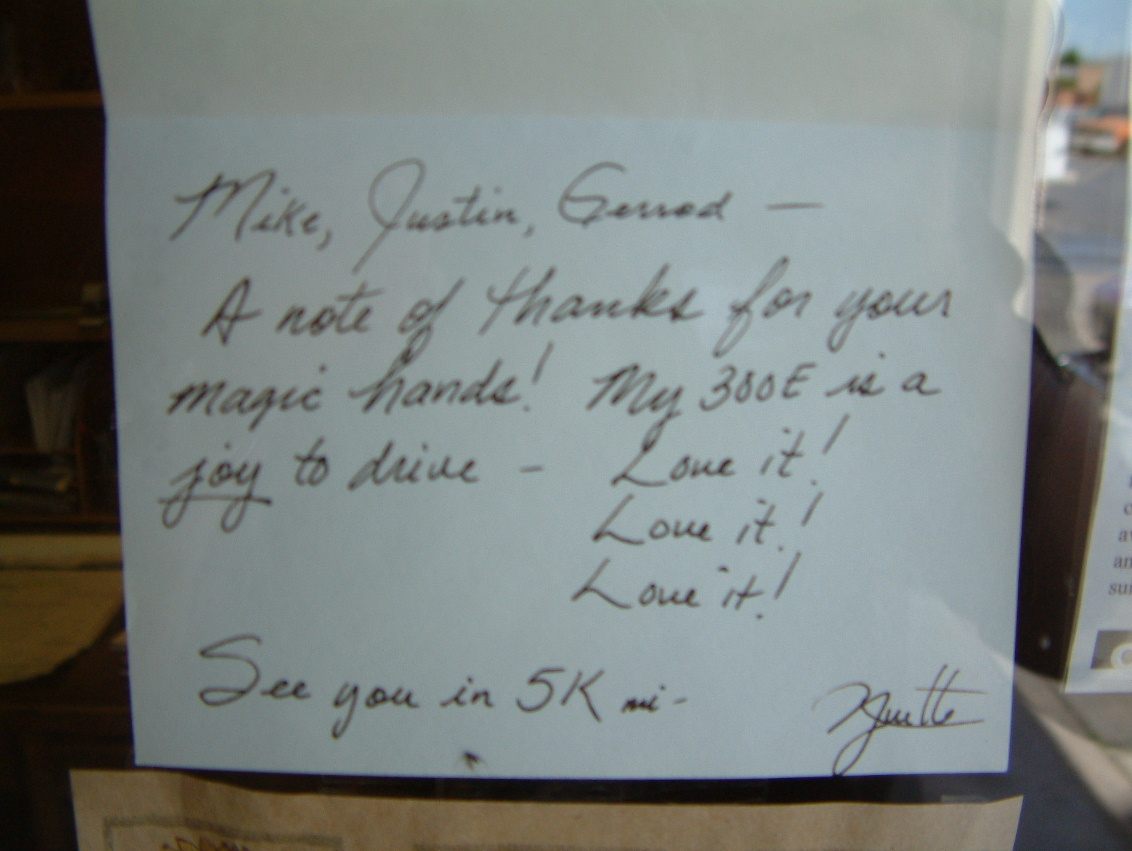 Mike, Justin, Gerrod —
A note of thanks for your
magic hands! My 300E is a
joy to drive - Love it!
Love it!
Love it!
See you in 5K mi-